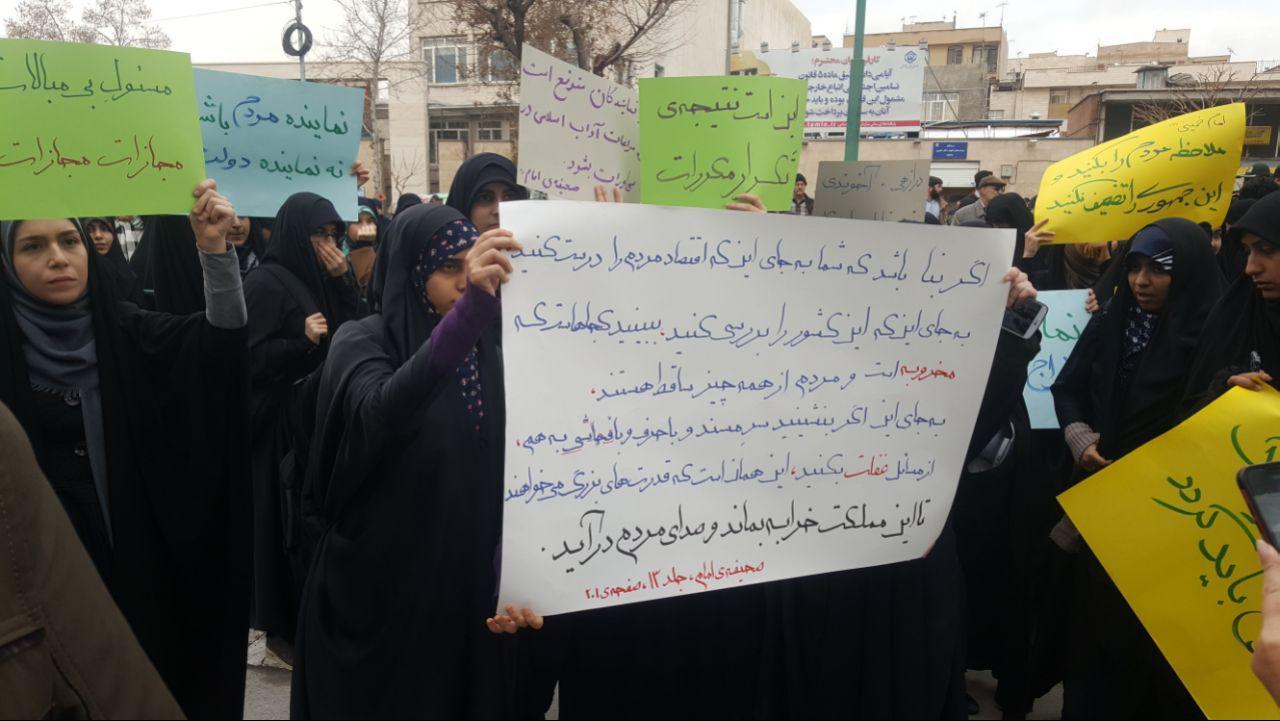 مسئول بی مبالات
مجازات مجازات
نماینده مردم باش
نه نماینده دولت
نمایندگان متنوع است
مراعات آداب اسلامی در
بشود
صحیفه‌ی امام
این است نتیجه‌ی
تکرار مکررات
ماده ۵ قانون
امام خمینی:
ملاحظه مردم را بکنید و
این جمهوری را تضعیف نکنید
اگر بنا باشد که شما به جای این که اقتصاد مردم را درست کنید
به جای این که این کشور را بررسی کنید، ببینید کجاهاست که
مخروبه است و مردم از همه چیز ساقط هستند،
به جای این اگر بنشینید سر مسند و با حرف و با فحاشی به هم،
از مسائل غفلت بکنید، این همان است که قدرت‌های بزرگ می‌خواهند
تا این مملکت خرابه بماند و صدای مردم درآید.
صحیفه‌ی امام، جلد ۱۳، صفحه‌ی ۲۰۱
باید کرد